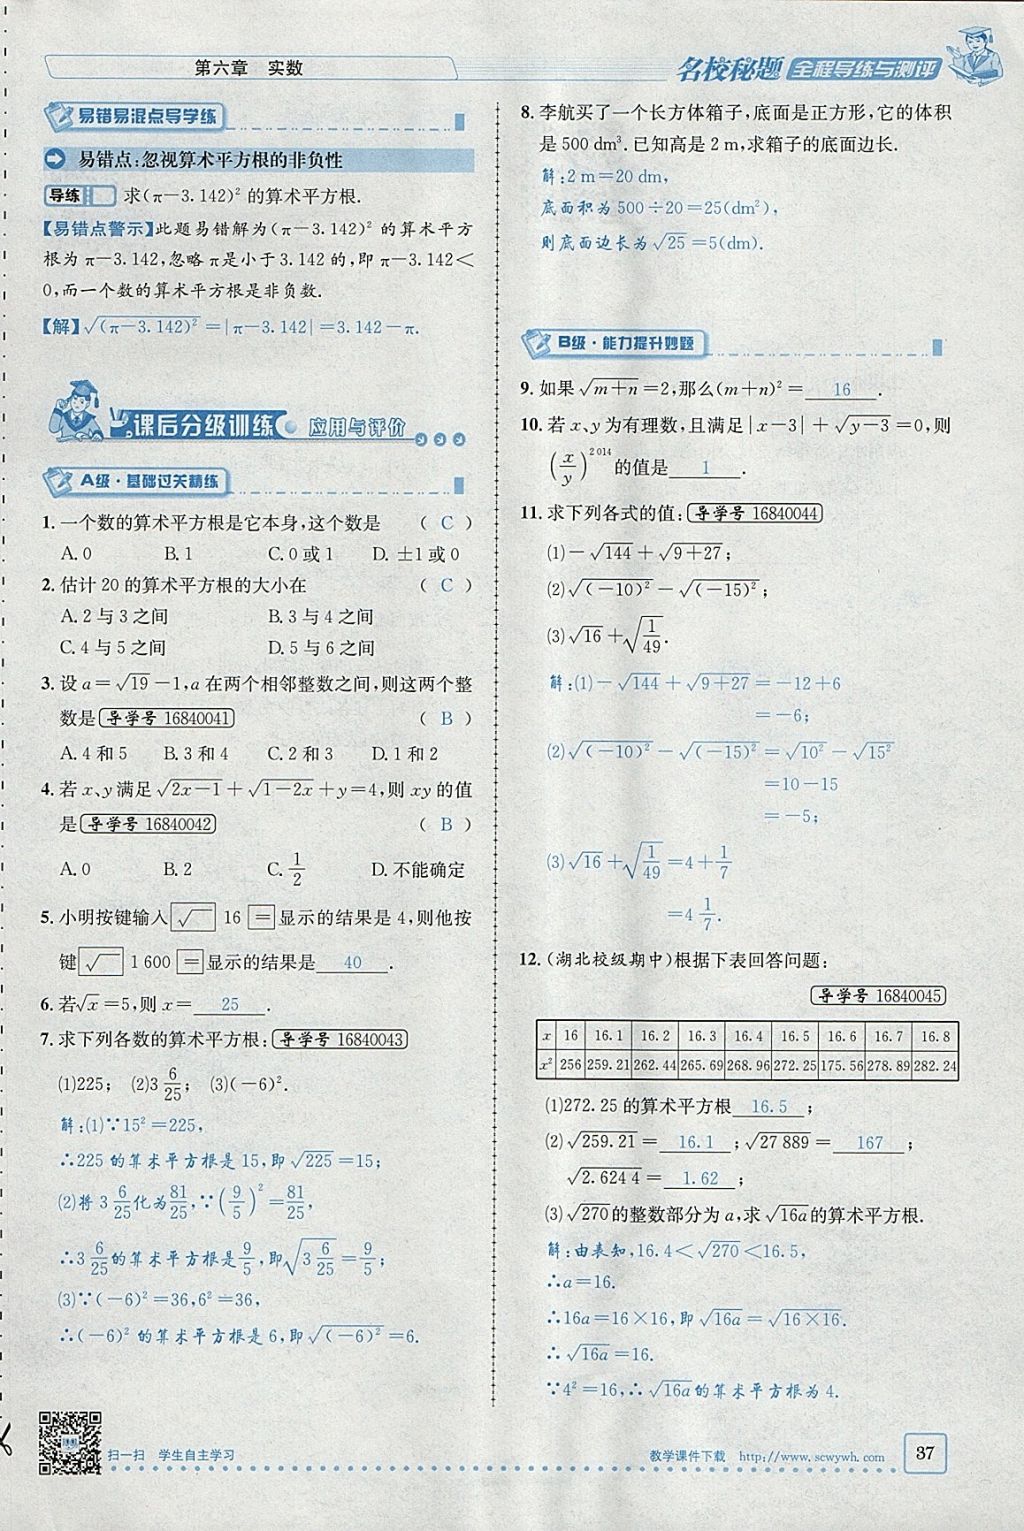 第六章 实数
名校秘题 全程导练与测评
易错易混点导学练
易错点:忽视算术平方根的非负性
导练 求(π-3.142)²的算术平方根.
【易错点警示】此题易错解为(π-3.142)²的算术平方
根为π-3.142,忽略π是小于3.142的,即π-3.142<
0,而一个数的算术平方根是非负数.
【解】√(π-3.142)²=|π-3.142|=3.142-π.
课后分级训练 应用与评价
A级·基础过关精练
1.一个数的算术平方根是它本身,这个数是 ( C )
A.0 B.1 C.0或1 D.±1或0
2.估计20的算术平方根的大小在 ( C )
A.2与3之间 B.3与4之间
C.4与5之间 D.5与6之间
3.设a=√19-1,a在两个相邻整数之间,则这两个整
数是 导学号 16840041 ( B )
A.4和5 B.3和4 C.2和3 D.1和2
4.若x、y满足√2x-1+√1-2x+y=4,则xy的值
是 导学号 16840042 ( B )
A.0 B.2 C.1/2 D.不能确定
5.小明按键输入 √ 16 = 显示的结果是4,则他按
键 √ 1 600 = 显示的结果是 40 .
6.若√x=5,则x= 25 .
7.求下列各数的算术平方根: 导学号 16840043
(1)225; (2)3 6/25; (3)(-6)².
解:(1)∵15²=225,
∴225的算术平方根是15,即√225=15;
(2)将3 6/25化为81/25,∵(9/5)²=81/25,
∴3 6/25的算术平方根是9/5,即√3 6/25=9/5;
(3)∵(-6)²=36,6²=36,
∴(-6)²的算术平方根是6,即√(-6)²=6.
8.李航买了一个长方体箱子,底面是正方形,它的体积
是500 dm³.已知高是2 m,求箱子的底面边长.
解:2 m=20 dm,
底面积为500÷20=25(dm²),
则底面边长为√25=5(dm).
B级·能力提升妙题
9.如果√m+n=2,那么(m+n)²= 16 .
10.若x、y为有理数,且满足|x-3|+√y-3=0,则
(x/y)²⁰¹⁴的值是 1 .
11.求下列各式的值: 导学号 16840044
(1)-√144+√9+27;
(2)√(-10)²-√(-15)²;
(3)√16+√1/49.
解:(1)-√144+√9+27=-12+6
=-6;
(2)√(-10)²-√(-15)²=√10²-√15²
=10-15
=-5;
(3)√16+√1/49=4+1/7
=4 1/7.
12.(湖北校级期中)根据下表回答问题:
导学号 16840045
x 16 16.1 16.2 16.3 16.4 16.5 16.6 16.7 16.8
x² 256 259.21 262.44 265.69 268.96 272.25 175.56 278.89 282.24
(1)272.25的算术平方根 16.5 ;
(2)√259.21= 16.1 ;√27 889= 167 ;
√2.624 4= 1.62 ;
(3)√270的整数部分为a,求√16a的算术平方根.
解:由表知,16.4<√270<16.5,
∴a=16.
∴16a=16×16,即√16a=√16×16.
∴√16a=16.
∵4²=16,∴√16a的算术平方根为4.
扫一扫 学生自主学习
教学课件下载 http://www.scwywh.com
37